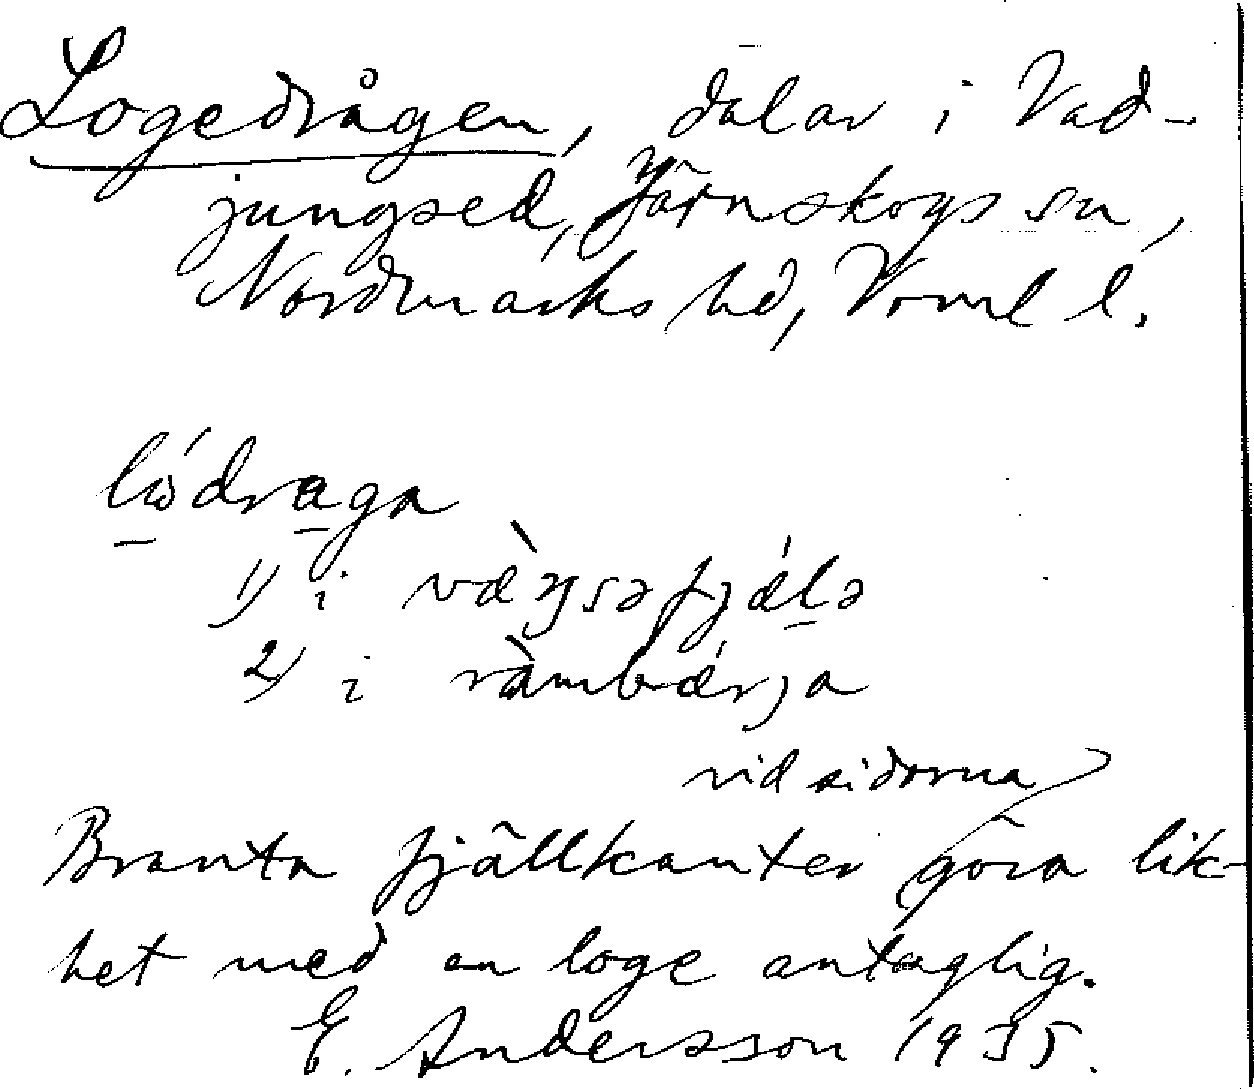 Logedrågen, dalar i Vad-
jungsed, Järnskogs sn,
Nordmarks hd, Verml l.
lódraga
1) i væŋsəfjælə
2) i ràmbærja
vid sidorna
Branta fjällkanter göra lik-
het med en loge antaglig.
E. Andersson 1935.